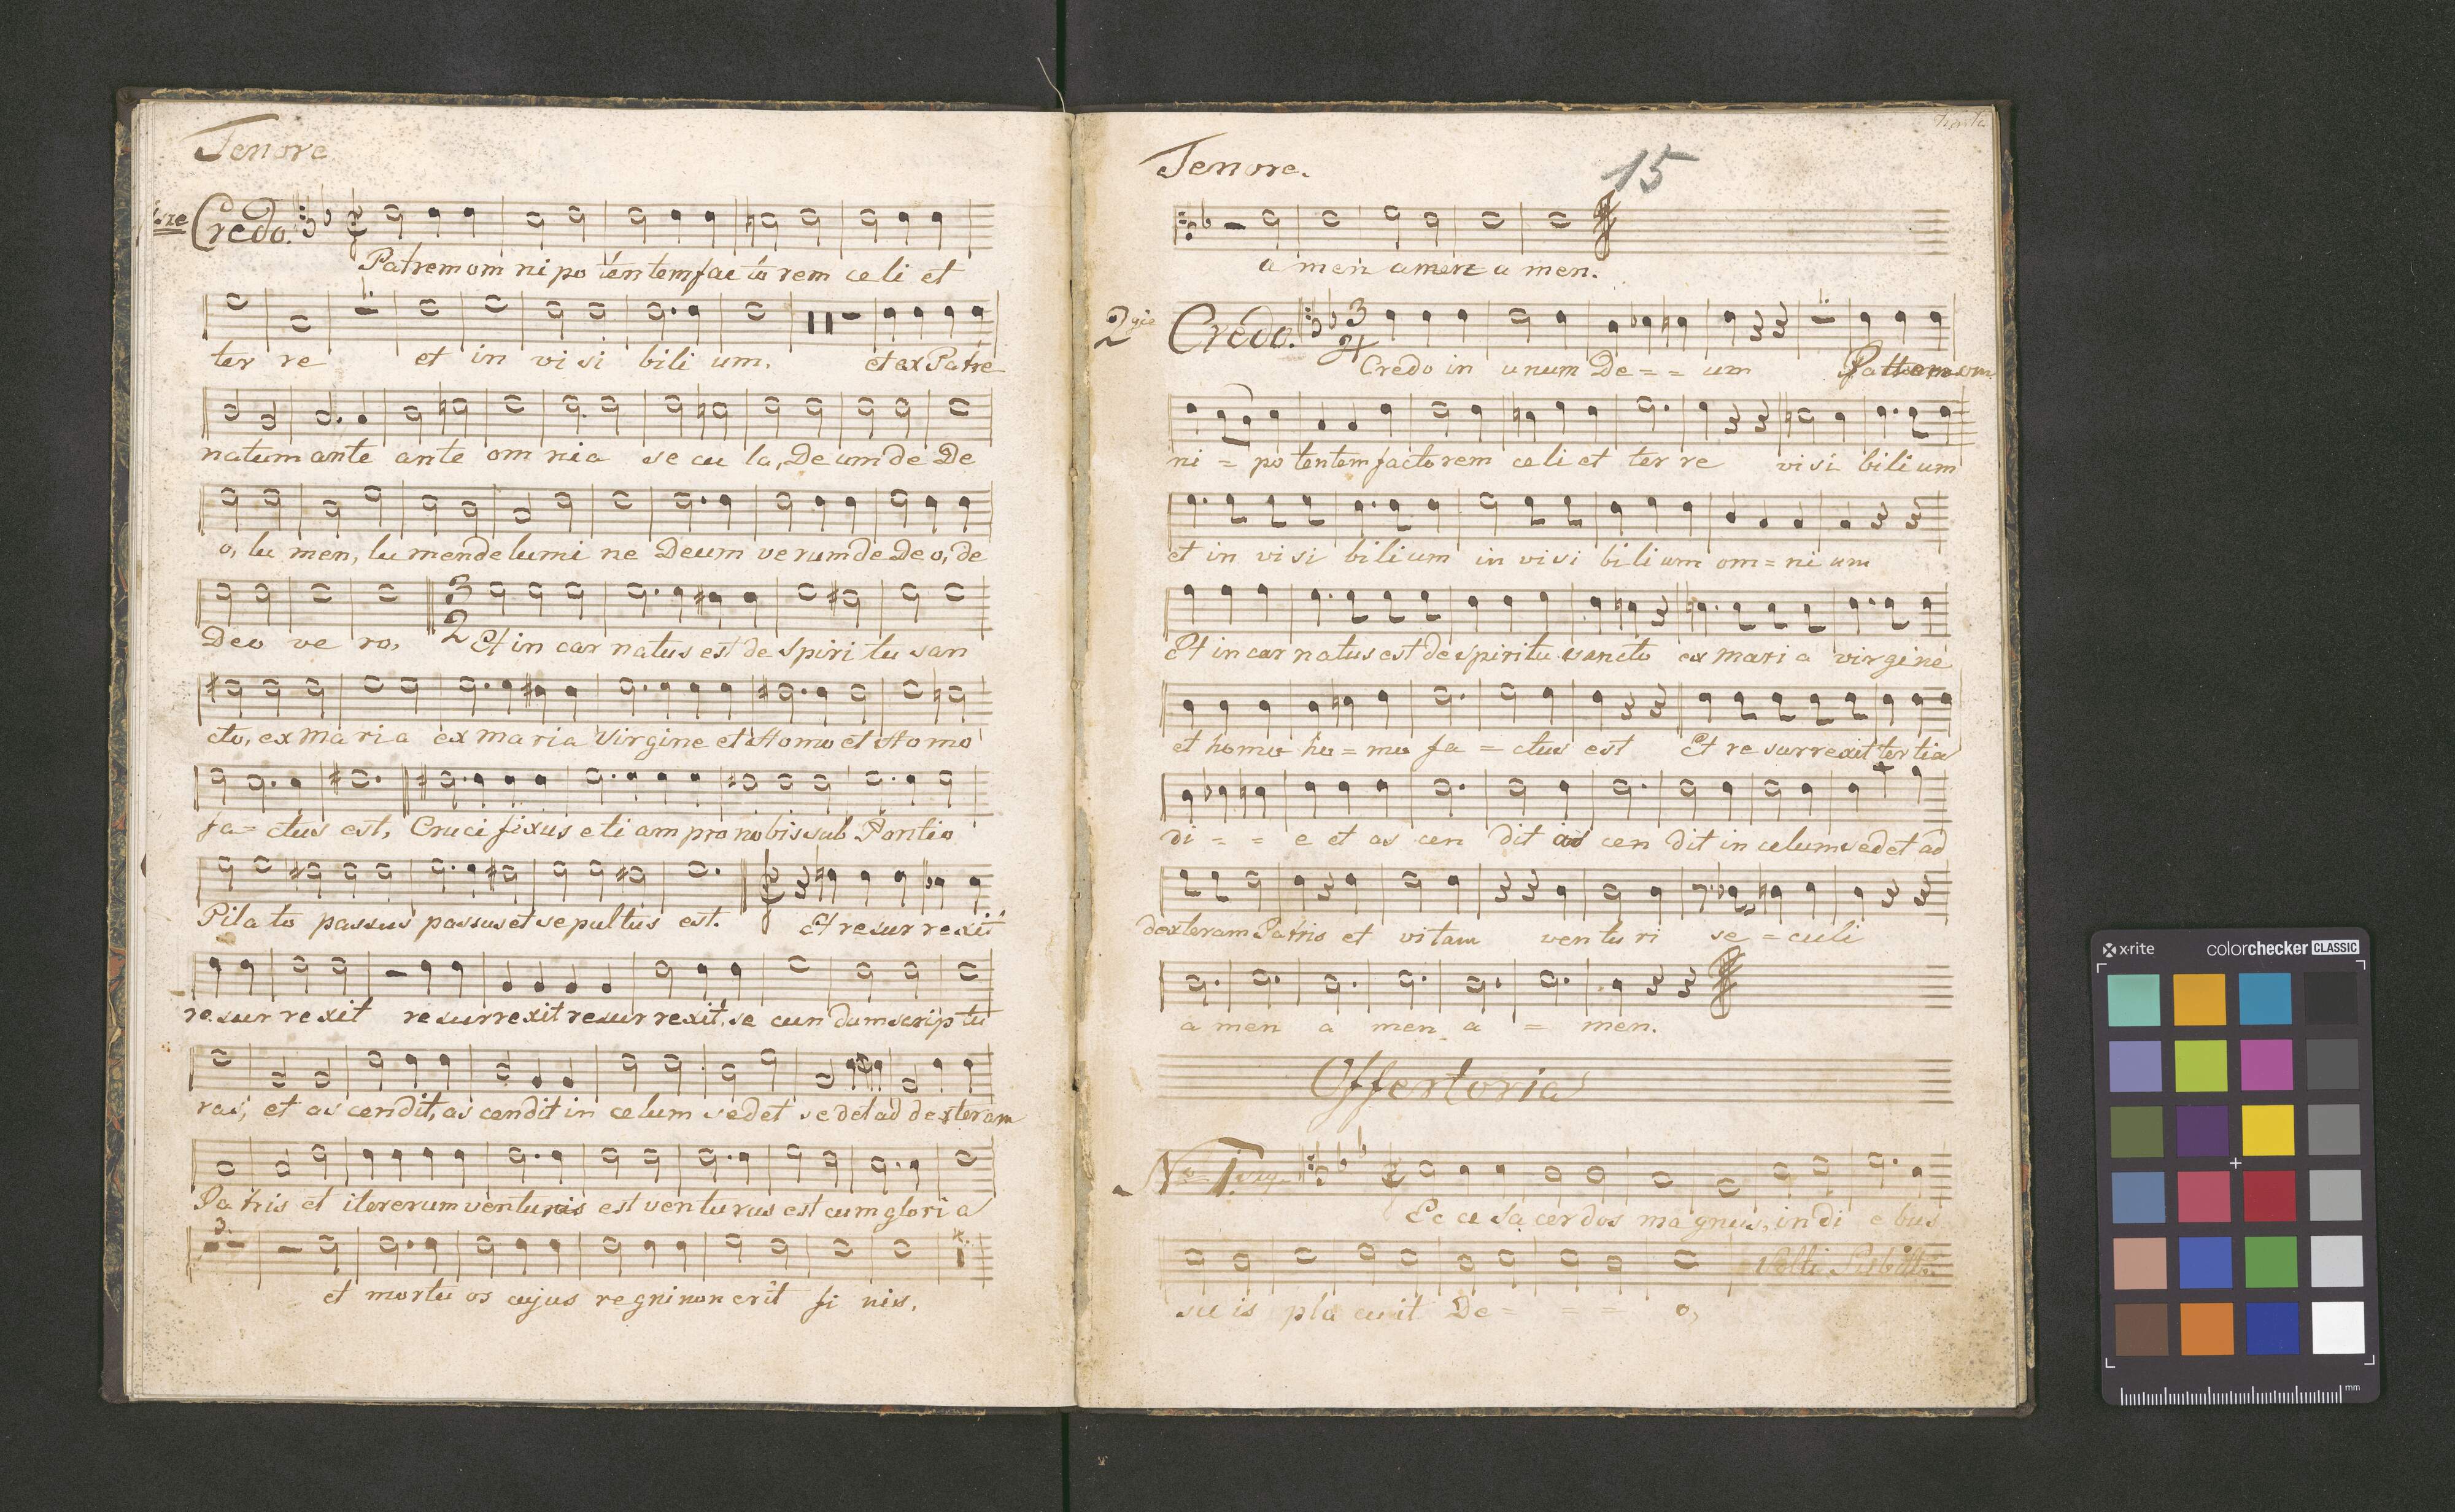 Tenore
Credo.
Patrem om ni po ten tem fac to rem ce li et
ter re et in vi si bili um. et ex Patre
natum ante ante om nia se cu la, De um de De
o, lu men, lu men de lumi ne Deum ve rum de De o, de
Deo ve ro, 3 2 Et in car natus est de spiri tu san
cto, ex Ma ri a ex ma ria Virgine et Homo et Homo
fa = ctus est, Cruci fixus eti am pro nobis sub Pontio
Pila to passus passus et se pul tus est. Et resur rexit
re sur re xit re surrexit resur rexit, se cun dum scrip tu
ras, et as cendit, as cendit in celum sedet se det ad dexteram
Pa tris et itererum venturis est ven tu rus est cum glori a
3.
et mortu os cujus re gni non erit fi nis.
Tenore. 15
a men amen a men.
2 Credo. 3 4
Credo in unum De = = um Patrem om
ni = po tentem facto rem celi et ter re visi bili um
et in vi si bili um in visi bili um om = ni um
Et in car natus est de spiritu sancto ex mari a virgine
et homo ho = mo fa = ctus est Et re surrexit tertia
di = = e et as cen dit as cen dit in celum sedet ad
dexteram Patris et vitam ven tu ri se = culi
a men a men a = men.
Offertoria
Ec ce Sa cer dos ma gnus, in di e bus
su is pla cu it De = = = o,